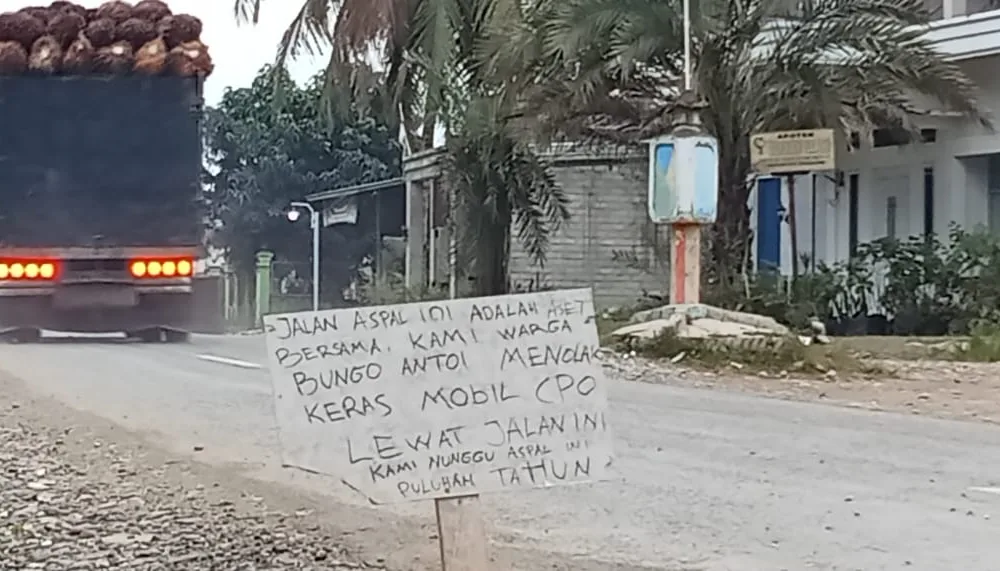 APOTEK
JALAN ASPAL INI ADALAH ASET
BERSAMA. KAMI WARGA
BUNGO ANTOI MENOLAK
KERAS MOBIL CPO
LEWAT JALAN INI
KAMI NUNGGU ASPAL INI
PULUHAN TAHUN